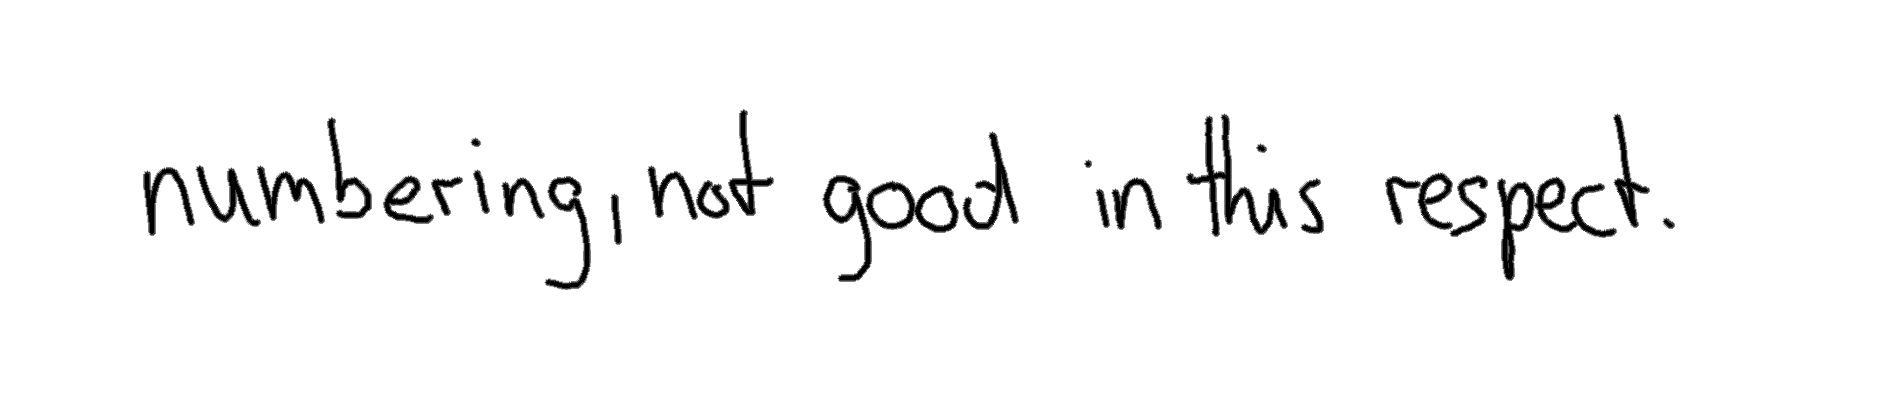 numbering, not good in this respect.